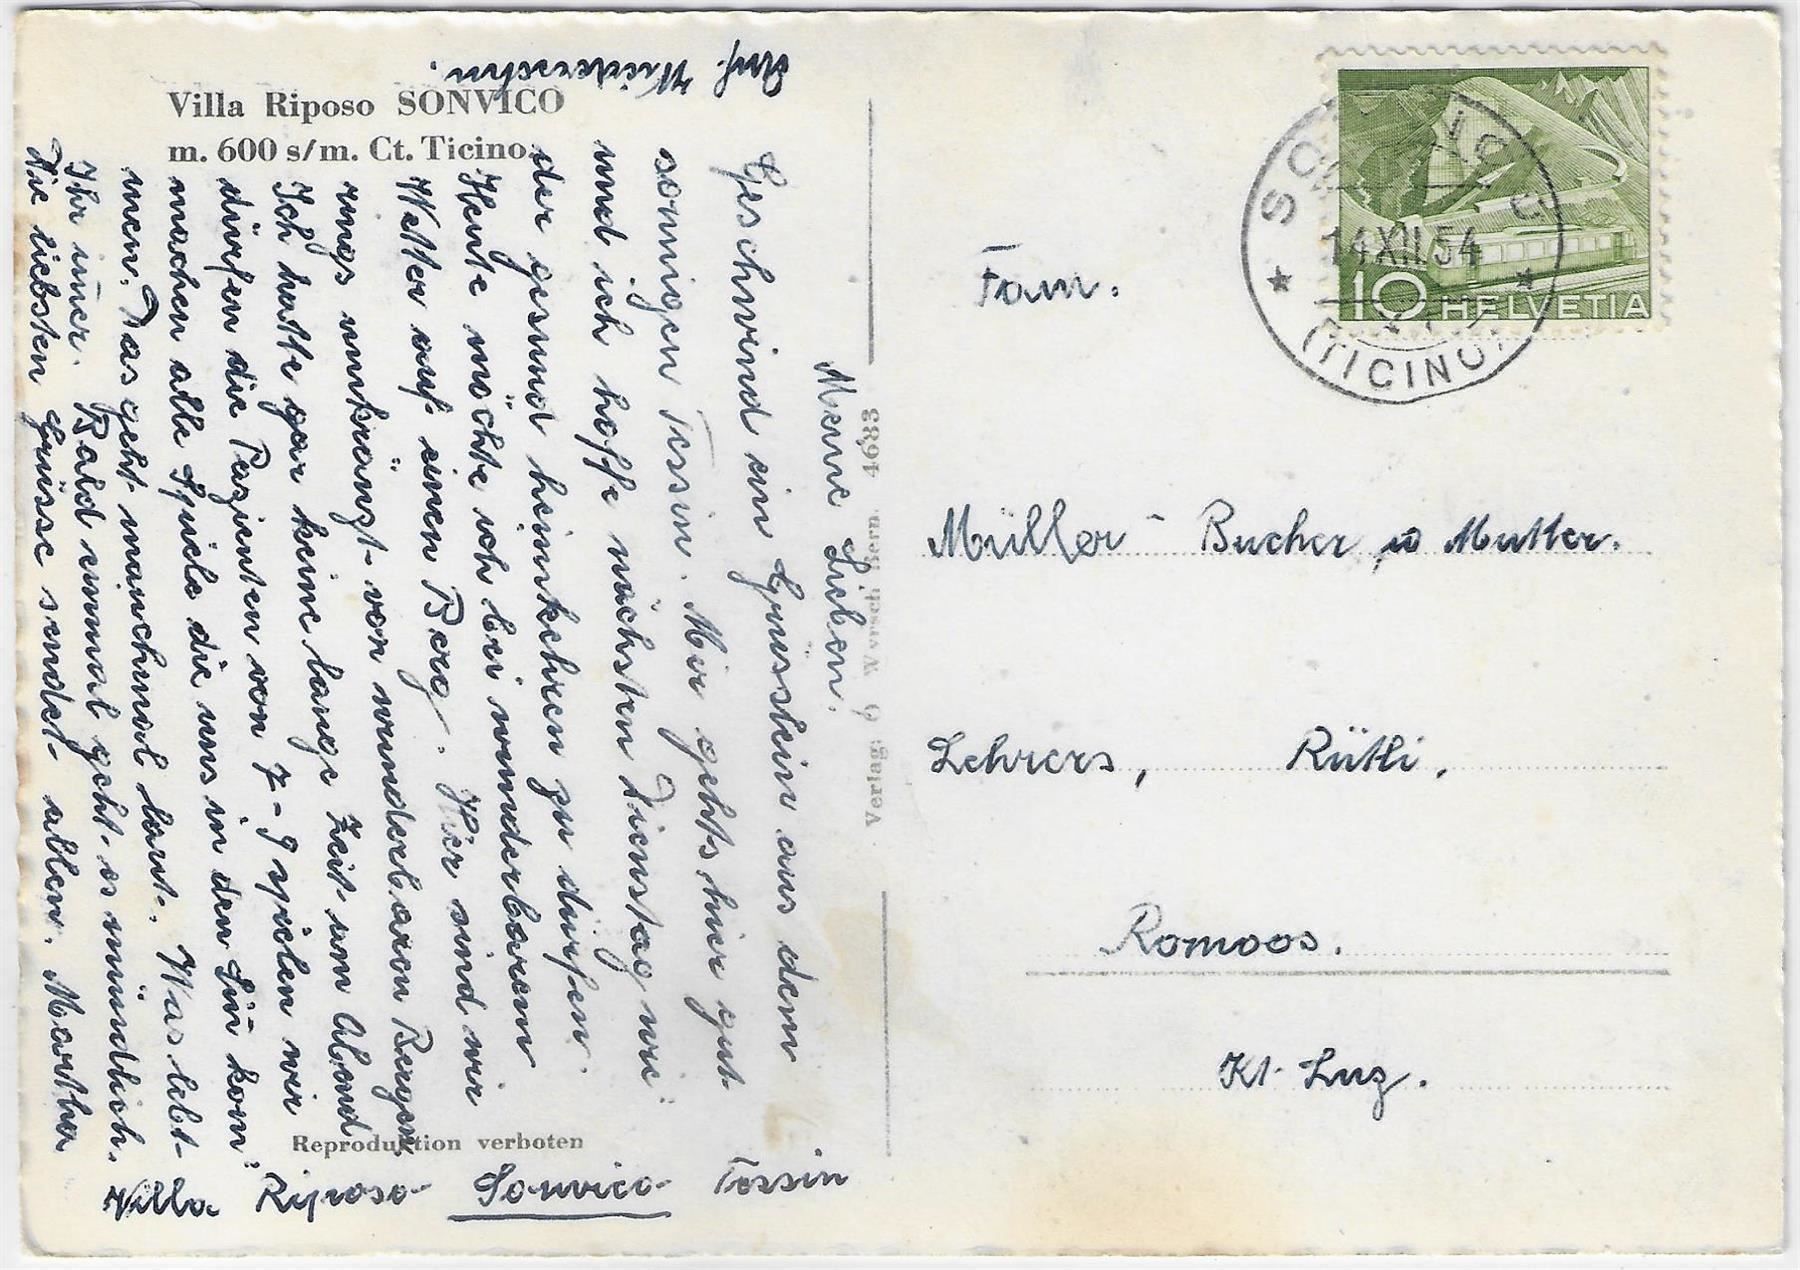 Villa Riposo SONVICO
m. 600 s/m. Ct. Ticino.
Meine Lieben.
Geschwind ein Grüsslein aus dem
sonnigen Tessin. Mir gehts hier gut
und ich hoffe nächsten Dienstag wie
der gesund heimkehren zu dürfen.
Heute möchte ich bei wunderbarem
Wetter auf einen Berg. Hier sind wir
rings umkränzt von wunderbaren Bergen
Ich hatte gar keine lange Zeit am Abend
dürfen die Pazienten von 7-9 spielen wir
machen alle Spiele die uns in den Sin̄ kom̄
men. Das geht manchmal laut. Was lebt
Ihr im̄er. Bald einmal geht es mündlich.
Die liebsten Grüsse sendet allen. Martha
Auf Wiedersehn.
Villa Riposo Sonvico Tessin
Reproduktion verboten
Verlag: O Wyrsch Bern. 4683
SONVICO
14.XII.54
(TICINO)
10 HELVETIA
Fam.
Müller-Bucher u Mutter.
Lehrers, Rütli,
Romoos.
Kt. Luz.